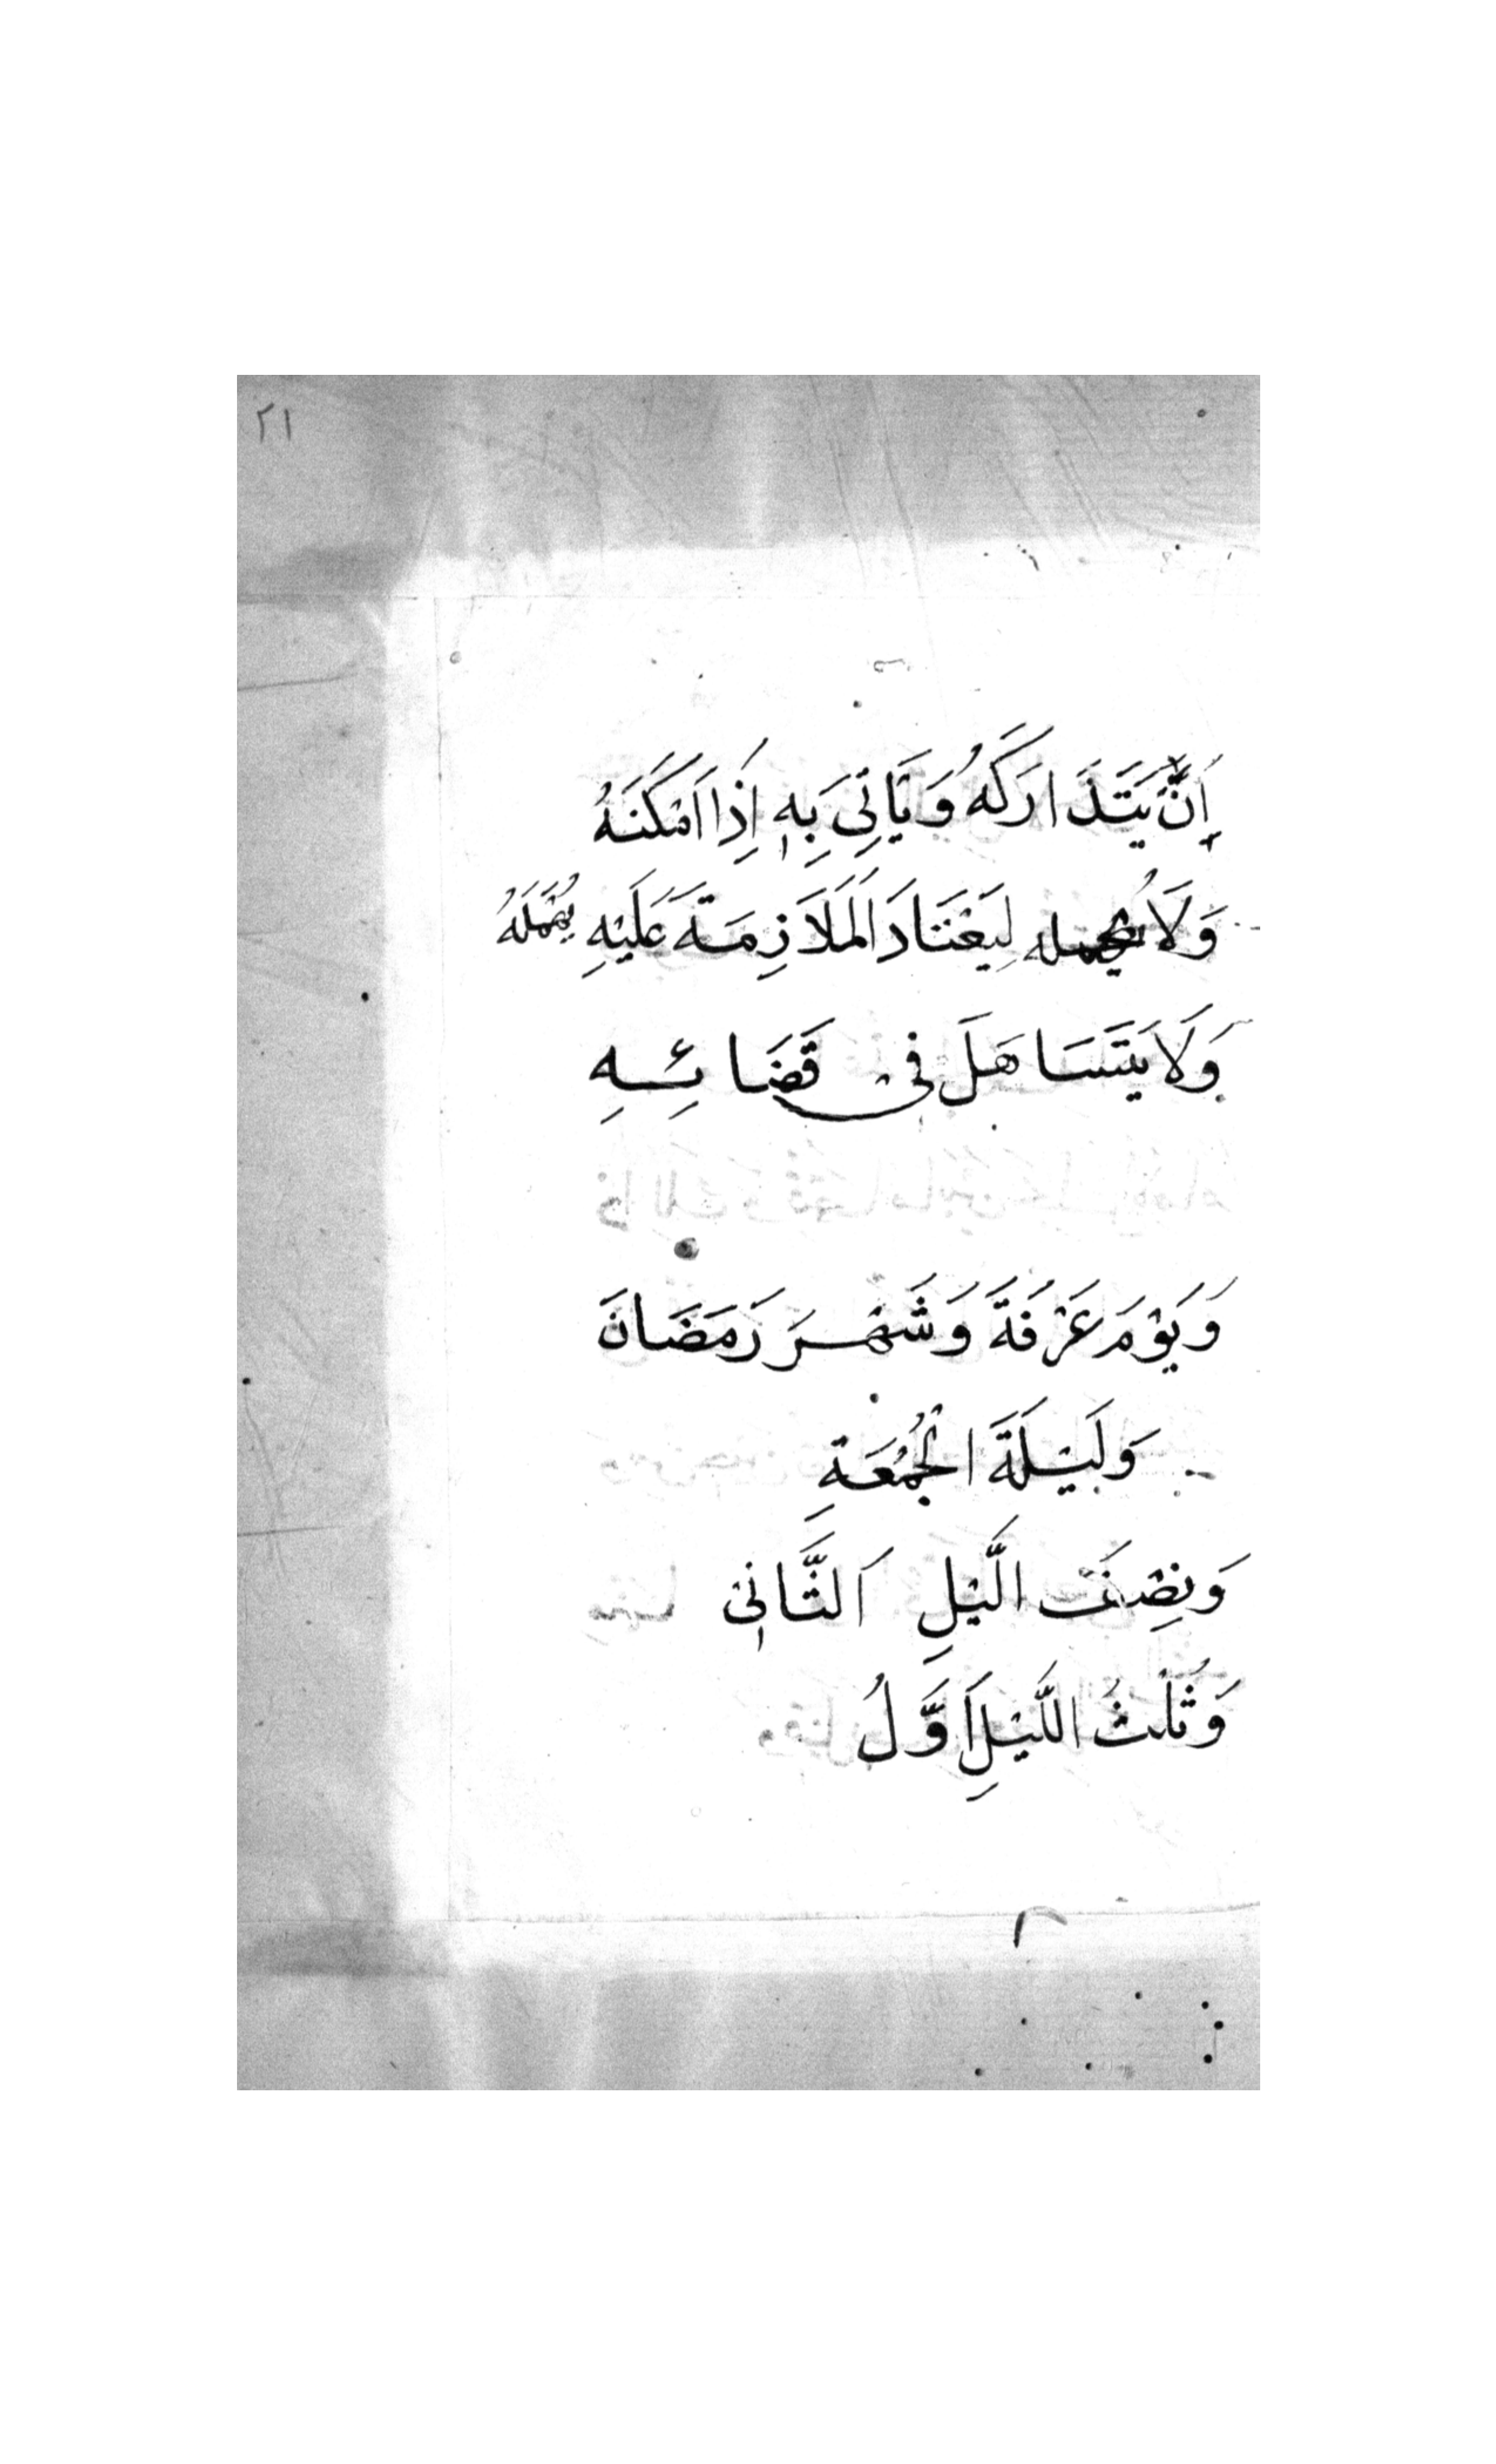 ٢١
اَنَّ يَتَدَارَكَهُ وَيَأتِىَ بِهِ اِذَا اَمْكَنَهُ
وَلَا لِيَعْتَادَ الْمَلَازِمَةَ عَلَيْهِ يُهْمِلَهُ
وَلَا يَتَسَاهَلَ فِى قَضَائِهِ
وَيَوْمَ عَرْفَةَ وَشَهْرَ رَمَضَانَ
وَلَيْلَةَ الْجُمْعَةِ
وَنِصْفَ الَّيْلِ اَلثَّانِىْ
وَثُلُثُ اللَّيْلِ اَوَّلُ